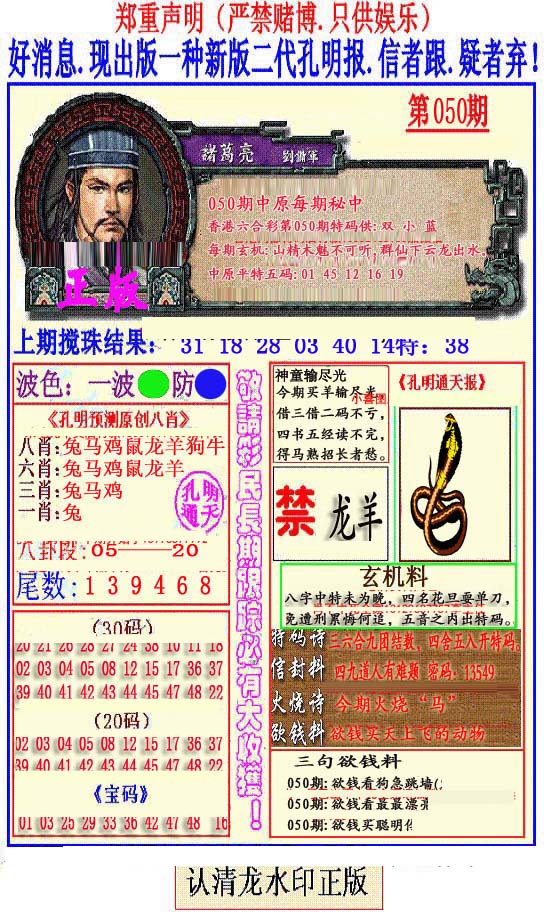 郑重声明（严禁赌博.只供娱乐）
好消息.现出版一种新版二代孔明报.信者跟.疑者弃！
第050期
諸葛亮 劉備軍
050期中原每期秘中
香港六合彩第050期特码供: 双 小 蓝
每期玄机: 山精木魅不可听, 群仙下云龙出水.
中原平特五码: 01 45 12 16 19
正版
上期搅珠结果: 31 18 28 03 40 14特: 38
波色: 一波 防
《孔明预测原创八肖》
八肖: 兔马鸡鼠龙羊狗牛
六肖: 兔马鸡鼠龙羊
三肖: 兔马鸡
一肖: 兔
孔明
通天
八卦段: 05——20
尾数: 1 3 9 4 6 8
(30码)
20 21 26 28 27 24 38 10 11 18
02 03 04 05 08 12 15 17 36 37
39 40 41 42 43 44 45 47 48 22
(20码)
02 03 04 05 08 12 15 17 36 37
39 40 41 42 43 44 45 47 48 22
《宝码》
01 03 25 29 33 36 42 47 48 16
敬請彩民長期跟踪必有大收獲！
神童输尽光
今期买羊输尽光
小喜图
借三借二码不亏,
四书五经读不完,
得马熟招长者愁。
《孔明通天报》
禁 龙羊
玄机料
八字中特未为晚, 四名花旦耍单刀,
免遭刑累悔何追, 五音之内出特码。
特码诗 三六合九团结数, 四舍五入开特码。
信封料 四九道人有难题 密码: 13549
火烧诗 今期火烧“马”
欲钱料 欲钱买天上飞的动物
三句欲钱料
050期: 欲钱看狗急跳墙(
050期: 欲钱看最最漂亮
050期: 欲钱买聪明
认清龙水印正版